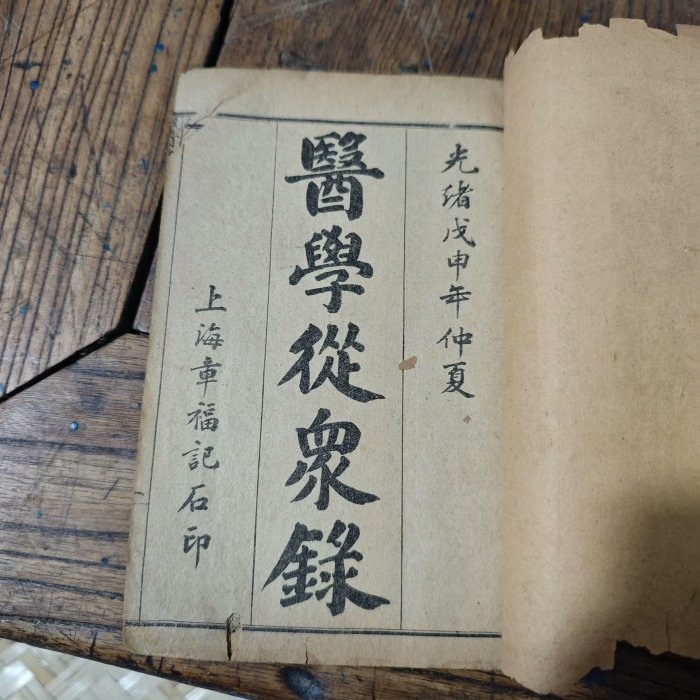 光緒戊申年仲夏
醫學從衆錄
上海章福記石印